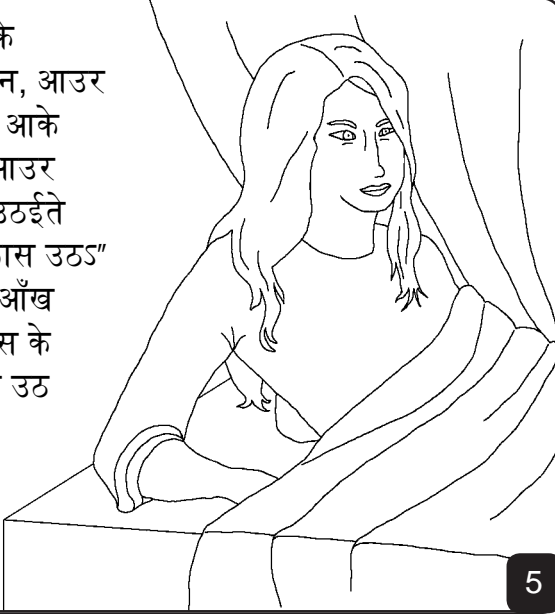 के
न, आउर
आके
आउर
उठईते
ास उठऽ”
आँख
स के
उठ
5